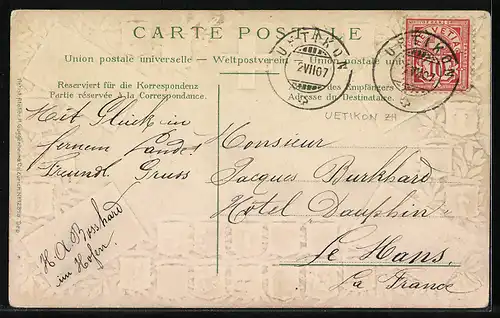 CARTE POSTALE
Union postale universelle. – Weltpostverein – Union postale universelle.
Reserviert für die Korrespondenz
Partie réservée à la Correspondance.
des Empfängers
Adresse du Destinataire.
UETIKON
2VII07
UETIKON
HELVETIA
10
UETIKON ZH
Mit Glück in
fernem Lande!
Freundl. Gruss
H. A. Bosshard
im Hofen.
Monsieur
Jacques Burkhard
Hôtel Dauphin
Le Mans,
La France